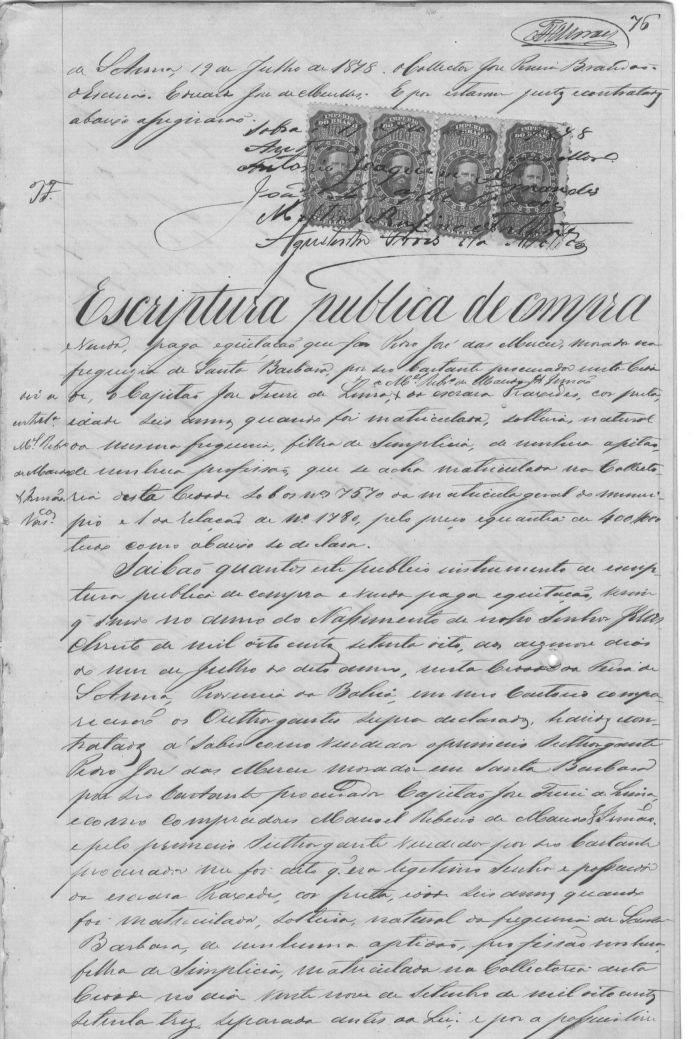 76
de S. Anna, 19 de Julho de 1878. O Collector José Brandão
O Escrivão. Eduardo José de Mendes. E por estarem justos e contratados
abaixo assignarão.
IMPERIO DO BRAZIL IMPERIO DO BRAZIL IMPERIO DO BRAZIL IMPERIO DO BRAZIL
Antonio Joaquim
João
Escriptura publica de compra
e venda, paga e quitação, que faz Pedro José das Mercês, morador na
freguezia de Santa Barbara, por seo bastante procurador nesta Cida
e Mel. Ribo. de Macedo & Irmão
de, o Capitão José Freire de Lima, da escrava Praxedes, cor preta,
idade seis annos quando foi matriculada, solteira, natural
da mesma freguezia, filha de Simplicia, de nenhuma aptidão,
de nenhuma profissão, que se acha matriculada na Collecto
ria desta Cidade sob os nos 7570 da matricula geral do munici
pio e 1 da relação de no. 1780, pelo preço e quantia de 400,000
tudo como abaixo se declara.
Saibão quantos este publico instrumento de escrip
tura publica de compra e venda paga e quitação, virem
q. sendo no anno do Nascimento de nosso Senhor Jesus
Christo de mil oito centos setenta e oito, aos dezenove dias
do mez de Julho do dito anno, nesta Cidade da Feira de
S. Anna, Provincia da Bahia, em meo Cartorio compa
recerão os Outhorgantes supra declarados, havidos con
tratados a saber como vendedor o primeiro Outhorgante
Pedro José das Mercês morador em Santa Barbara
por seo bastante procurador Capitão José Freire de Lima,
e como compradores Manoel Ribeiro de Macedo & Irmão.
e pelo primeiro Outhorgante vendedor por seo bastante
procurador me foi dito q. era legitimo Senhor e possuidor
da escrava Praxedes, cor preta, idade seis annos quando
foi matriculada, solteira, natural da freguezia de Santa
Barbara, de nenhuma aptidão, profissão nenhuma,
filha de Simplicia, matriculada na Collectoria desta
Cidade no dia vinte nove de Setembro de mil oito centos
setenta tres, separada antes da Lei; e por a possuir livre